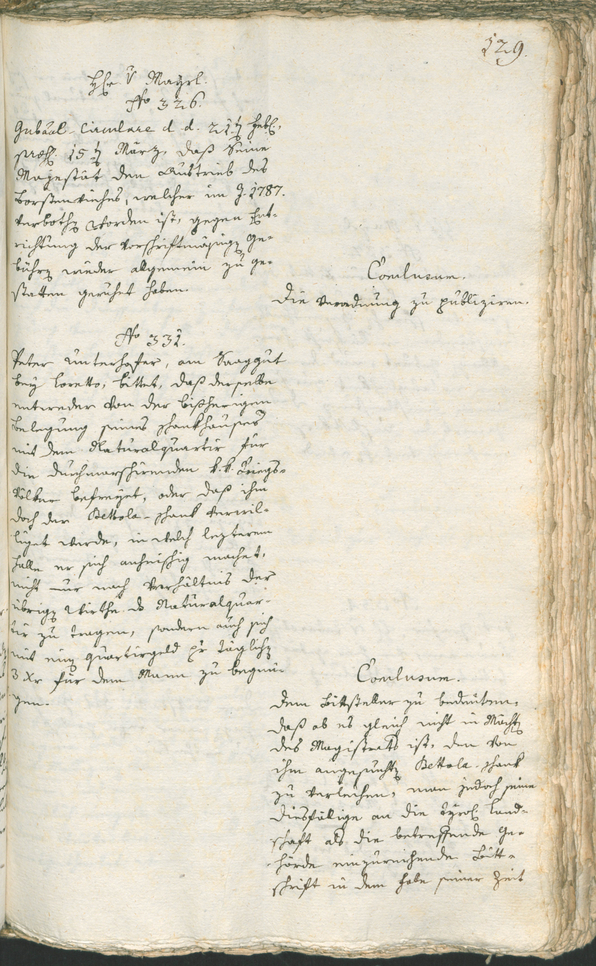 129.
Hr. v. Mayrl.
No 326.
Gubäal-Circulare d. d. 21t Febr.
praes. 15t März, daß Seine
Majestät den Austrieb des
Borstenviehes, welcher im J. 1787.
verbothen worden ist, gegen Ent-
richtung der vorschriftmäsigen Ge-
bühren wieder allgemein zu ge-
statten geruhet haben.
Conclusum.
Die Verordnung zu publiziren.
No 331.
Peter Unterhofer, am Saaggut
bey Loretto, bittet, daß derselbe
entweder von der bisherigen
Belegung seines Schankhauses
mit dem Naturalquartir für
die durchmarschirenden k. k. Kriegs-
völker befreyet, oder daß ihm
doch der Bettola-Schank verwil-
liget werde, in welch lezterem
Falle er sich anheischig machet,
nicht nur nach Verhältnis der
übrigen Wirthe das Naturalquar-
tir zu tragen, sondern auch sich
mit einem Quartirgeld pr täglich
3 Xr für dem Mann zu begnü-
gen.
Conclusum.
Dem Bittsteller zu bedeuten,
daß ob es gleich nicht in Macht
des Magistrats ist, den von
ihm angesuchten Bettola-Schank
zu verleihen, man jedoch seine
diesfälige an die Tyrol. Land-
schaft als die betreffende Be-
hörde einzureichende Bitt-
schrift in dem habe seiner Zeit